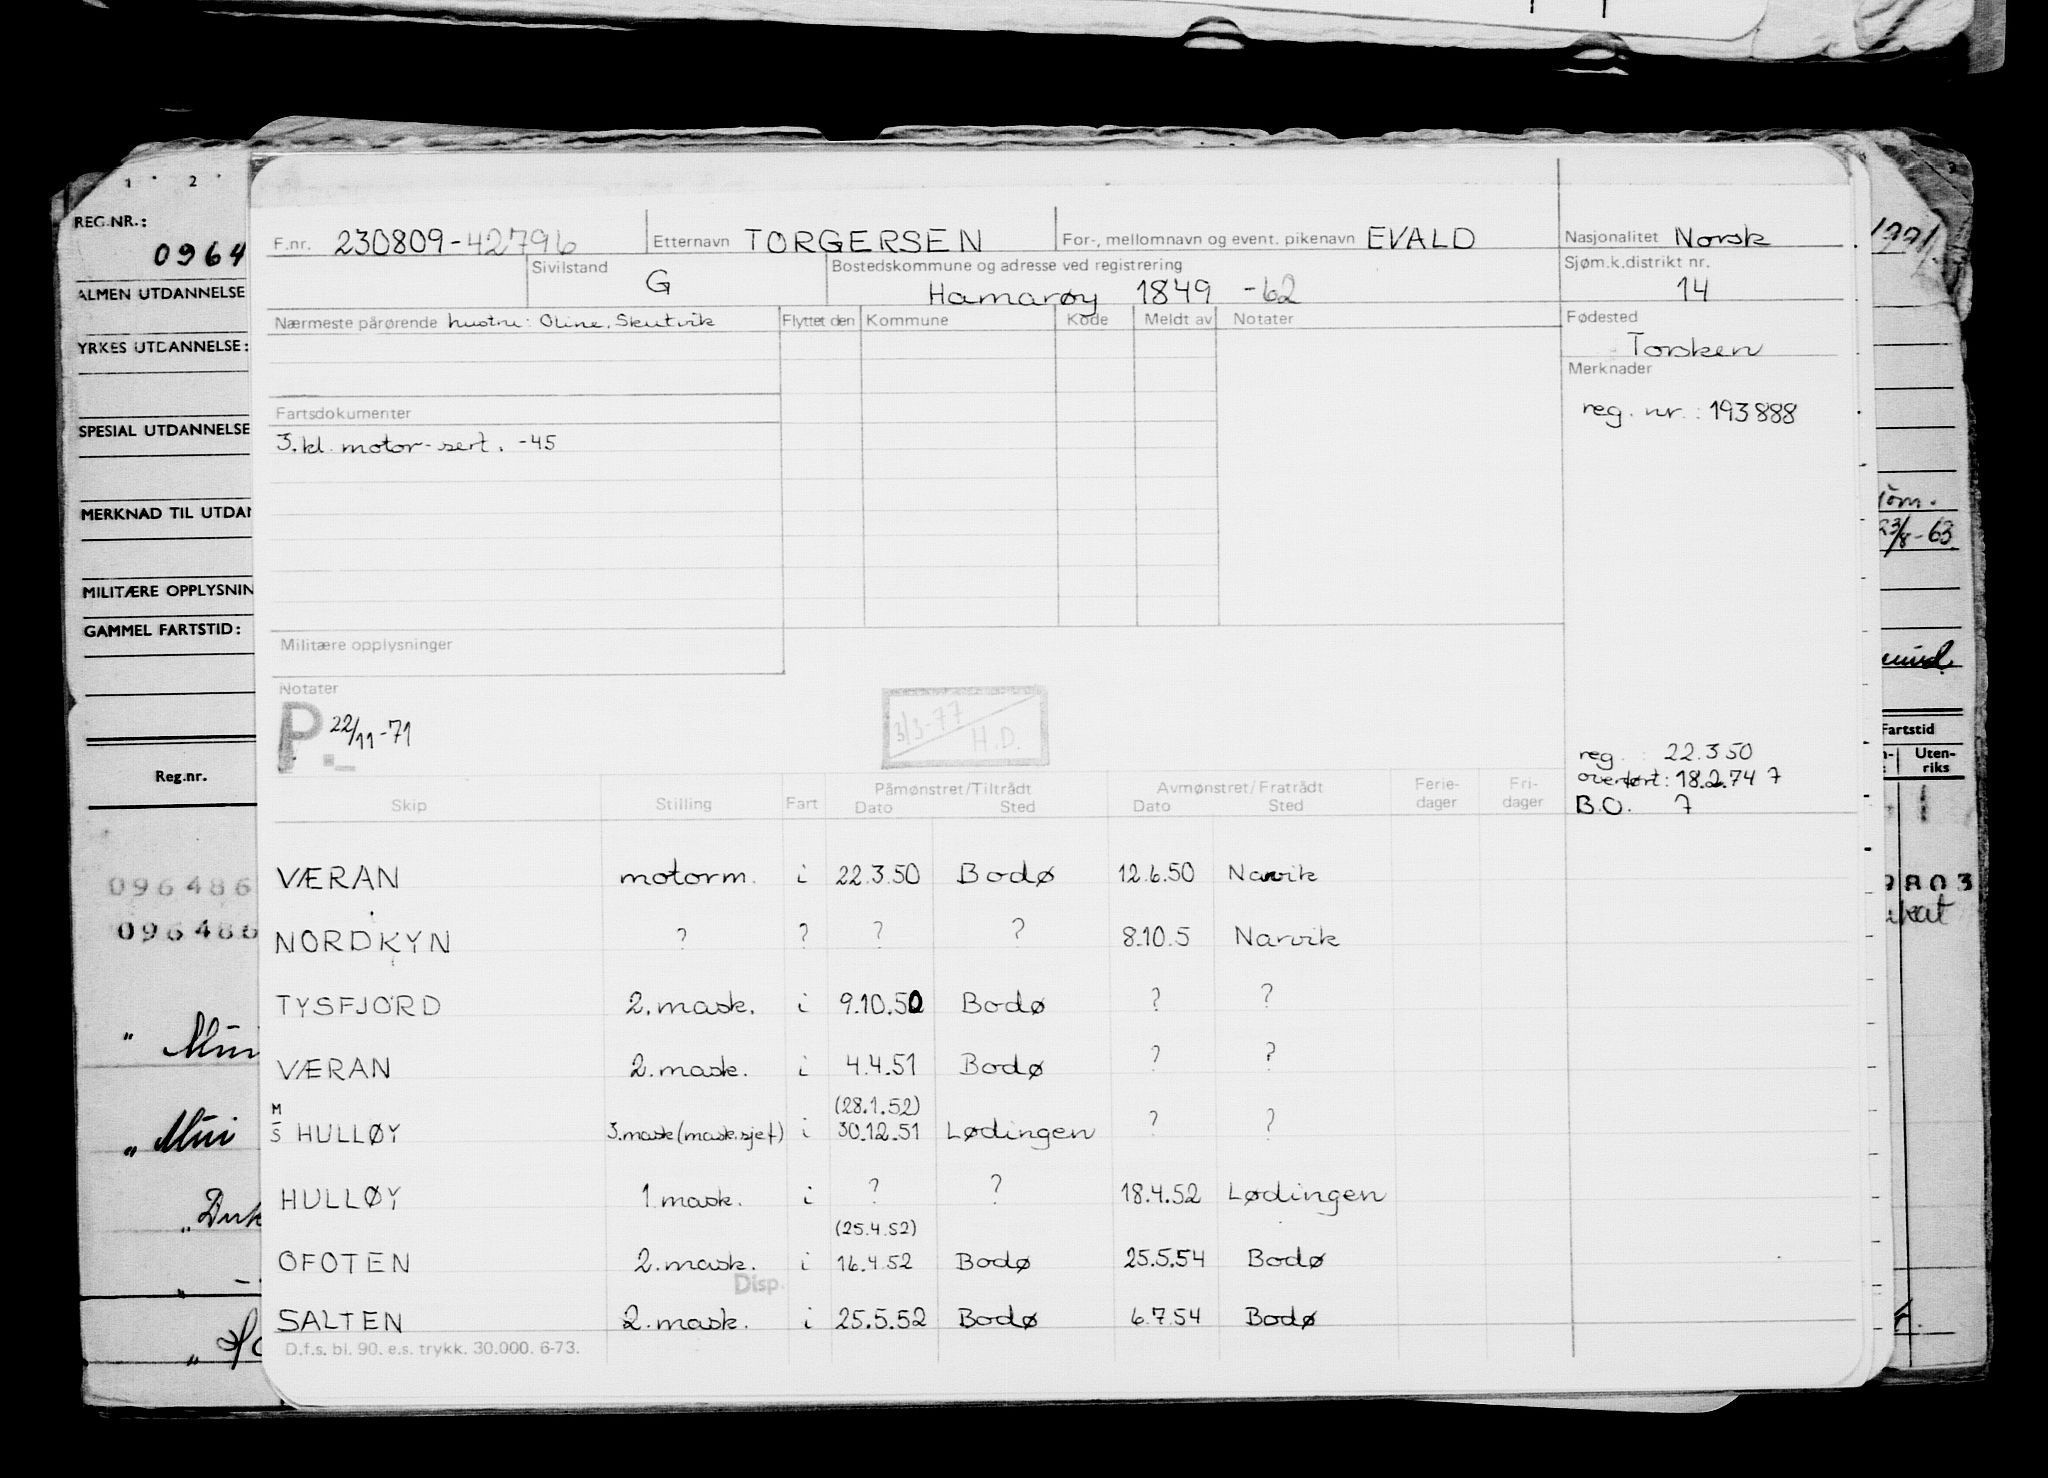 1 2
REG.NR.:
0964
ALMEN UTDANNELSE
YRKES UTDANNELSE:
SPESIAL UTDANNELSE
MERKNAD TIL UTDAN
MILITÆRE OPPLYSNIN
GAMMEL FARTSTID:
Reg.nr.
096486
096486
F.nr. 230809-42796 Etternavn TORGERSEN For-, mellomnavn og event. pikenavn EVALD Nasjonalitet Norsk
Sivilstand G Bostedskommune og adresse ved registrering Sjøm.k.distrikt nr.
Hamarøy 1849 -62 14
Nærmeste pårørende hustru: Oline, Skutvik Flyttet den Kommune Kode Meldt av Notater Fødested
Torsken
Merknader
Fartsdokumenter reg. nr.: 193888
3. kl. motor-sert. -45
Militære opplysninger
Notater
P. 22/11-71
3/3-77 H.D.
reg. : 22.3.50
overført: 18.2.74 7
B.O. 7
Skip Stilling Fart Påmønstret/Tiltrådt Dato Sted Avmønstret/Fratrådt Dato Sted Ferie-dager Fri-dager
VÆRAN motorm. i 22.3.50 Bodø 12.6.50 Narvik
NORDKYN ? ? ? ? 8.10.5 Narvik
TYSFJORD 2. mask. i 9.10.50 Bodø ? ?
VÆRAN 2. mask. i 4.4.51 Bodø ? ?
(28.1.52)
M/S HULLØY 3. mask (mask.sjef) i 30.12.51 Lødingen ? ?
HULLØY 1. mask. i ? ? 18.4.52 Lødingen
(25.4.52)
OFOTEN 2. mask. i 16.4.52 Bodø 25.5.54 Bodø
Disp.
SALTEN 2. mask. i 25.5.52 Bodø 6.7.54 Bodø
D.f.s. bl. 90. e.s. trykk. 30.000. 6-73.
23/8-63
Fartstid
Uten-
riks
9803